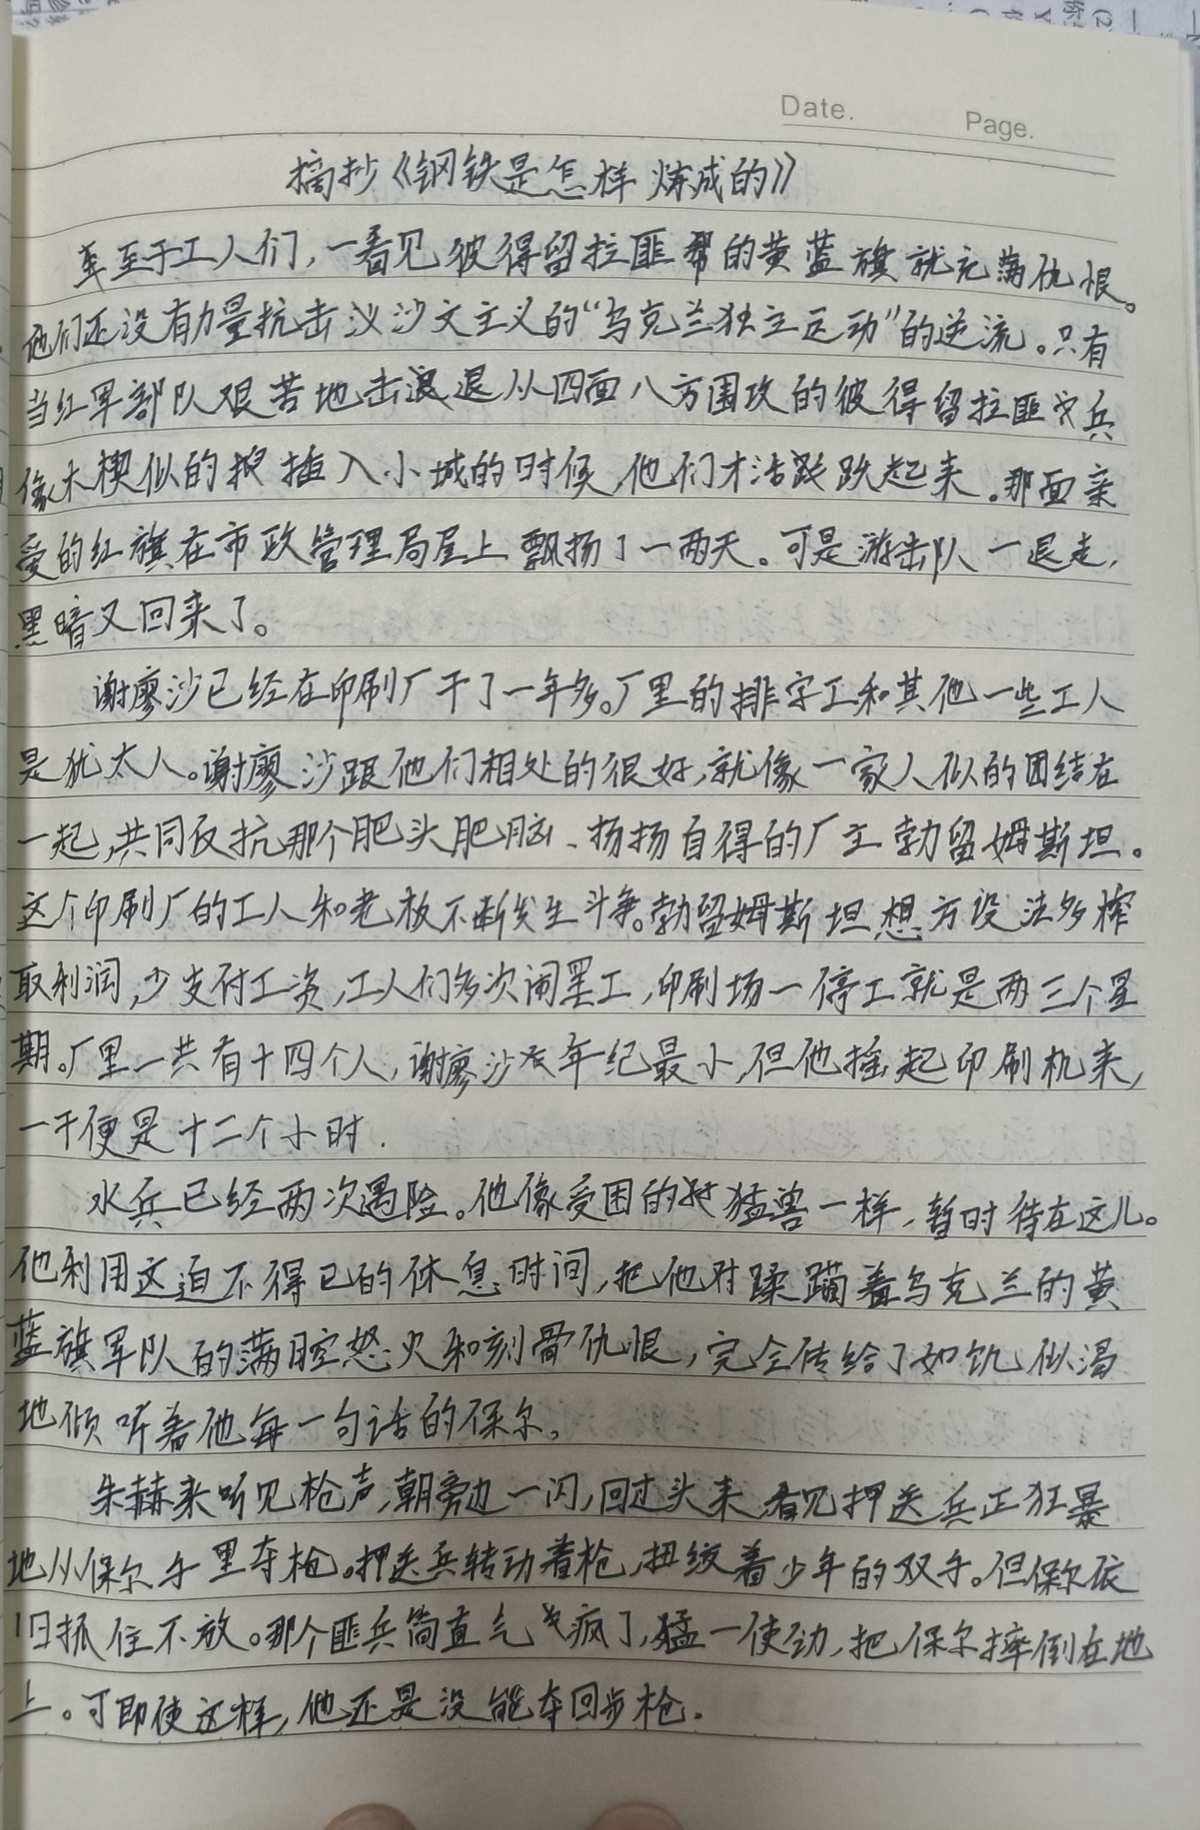 Date.
Page.
摘抄《钢铁是怎样炼成的》
至于工人们，一看见彼得留拉匪帮的黄蓝旗就充满仇恨。
他们还没有力量抗击这沙文主义的“乌克兰独立运动”的逆流。只有
当红军部队艰苦地击退从四面八方围攻的彼得留拉匪兵
像木楔似的插入小城的时候，他们才活跃起来。那面亲
爱的红旗在市政管理局屋上飘扬了一两天。可是游击队一退走，
黑暗又回来了。
谢廖沙已经在印刷厂干了一年多。厂里的排字工和其他一些工人
是犹太人。谢廖沙跟他们相处的很好，就像一家人似的团结在
一起，共同反抗那个肥头肥脑、扬扬自得的厂主勃留姆斯坦。
这个印刷厂的工人和老板不断发生斗争。勃留姆斯坦想方设法多榨
取利润，少支付工资，工人们多次闹罢工，印刷场一停工就是两三个星
期。厂里一共有十四个人，谢廖沙年纪最小，但他摇起印刷机来，
一干便是十二个小时.
水兵已经两次遇险。他像受困的猛兽一样，暂时待在这儿。
他利用这迫不得已的休息时间，把他对蹂躏着乌克兰的黄
蓝旗军队的满腔怒火和刻骨仇恨，完全传给了如饥似渴
地倾听着他每一句话的保尔。
朱赫来听见枪声，朝旁边一闪，回过头来，看见押送兵正狂暴
地从保尔手里夺枪。押送兵转动着枪，扭绞着少年的双手。但保尔依
旧抓住不放。那个匪兵简直气疯了，猛一使劲，把保尔摔倒在地
上。可即使这样，他还是没能夺回步枪.